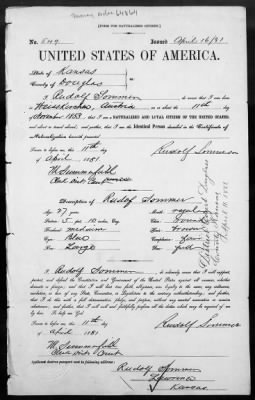 Money order 64364
[FORM FOR NATURALIZED CITIZEN.]
No. 549. Issued April 16/81
UNITED STATES OF AMERICA.
State of Kansas
County of Douglas
I Rudolf Sommer
Austria on or about the 11th day
of November 1853, that I am a NATURALIZED AND LOYAL CITIZEN OF THE UNITED STATES
and about to travel abroad; and further, that I am the Identical Person described in the Certificate of
Naturalization herewith presented.
Sworn to before me this 11th
day of April 1881
Rudolf Sommer
M Summerfield
Clerk Dist. Court
Description of Rudolf Sommer
Age 27 years
Stature 5 feet 10 inches, Eng.
Forehead medium
Eyes Blue
Nose Large
Mouth
Chin
Hair Brown
Complexion
Face full
I Rudolf Sommer do solemnly swear that I will support,
protect, and defend the Constitution and Government of the United States against all enemies, whether
domestic or foreign; and that I will bear true faith, allegiance, and loyalty to the same, any ordinance,
resolution, or law of any State, Convention, or Legislature to the contrary notwithstanding; and further,
that I do this with a full determination, pledge, and purpose, without any mental reservation or
evasion whatsoever; and further, that I will well and faithfully perform all the duties which may be required of me by law.
So help me God.
Sworn to before me this 11th
day of April 1881
Rudolf Sommer
M Summerfield
Clerk Dist. Court
Applicant desires passport sent to following address:
Rudolf Sommer
Lawrence
Kansas